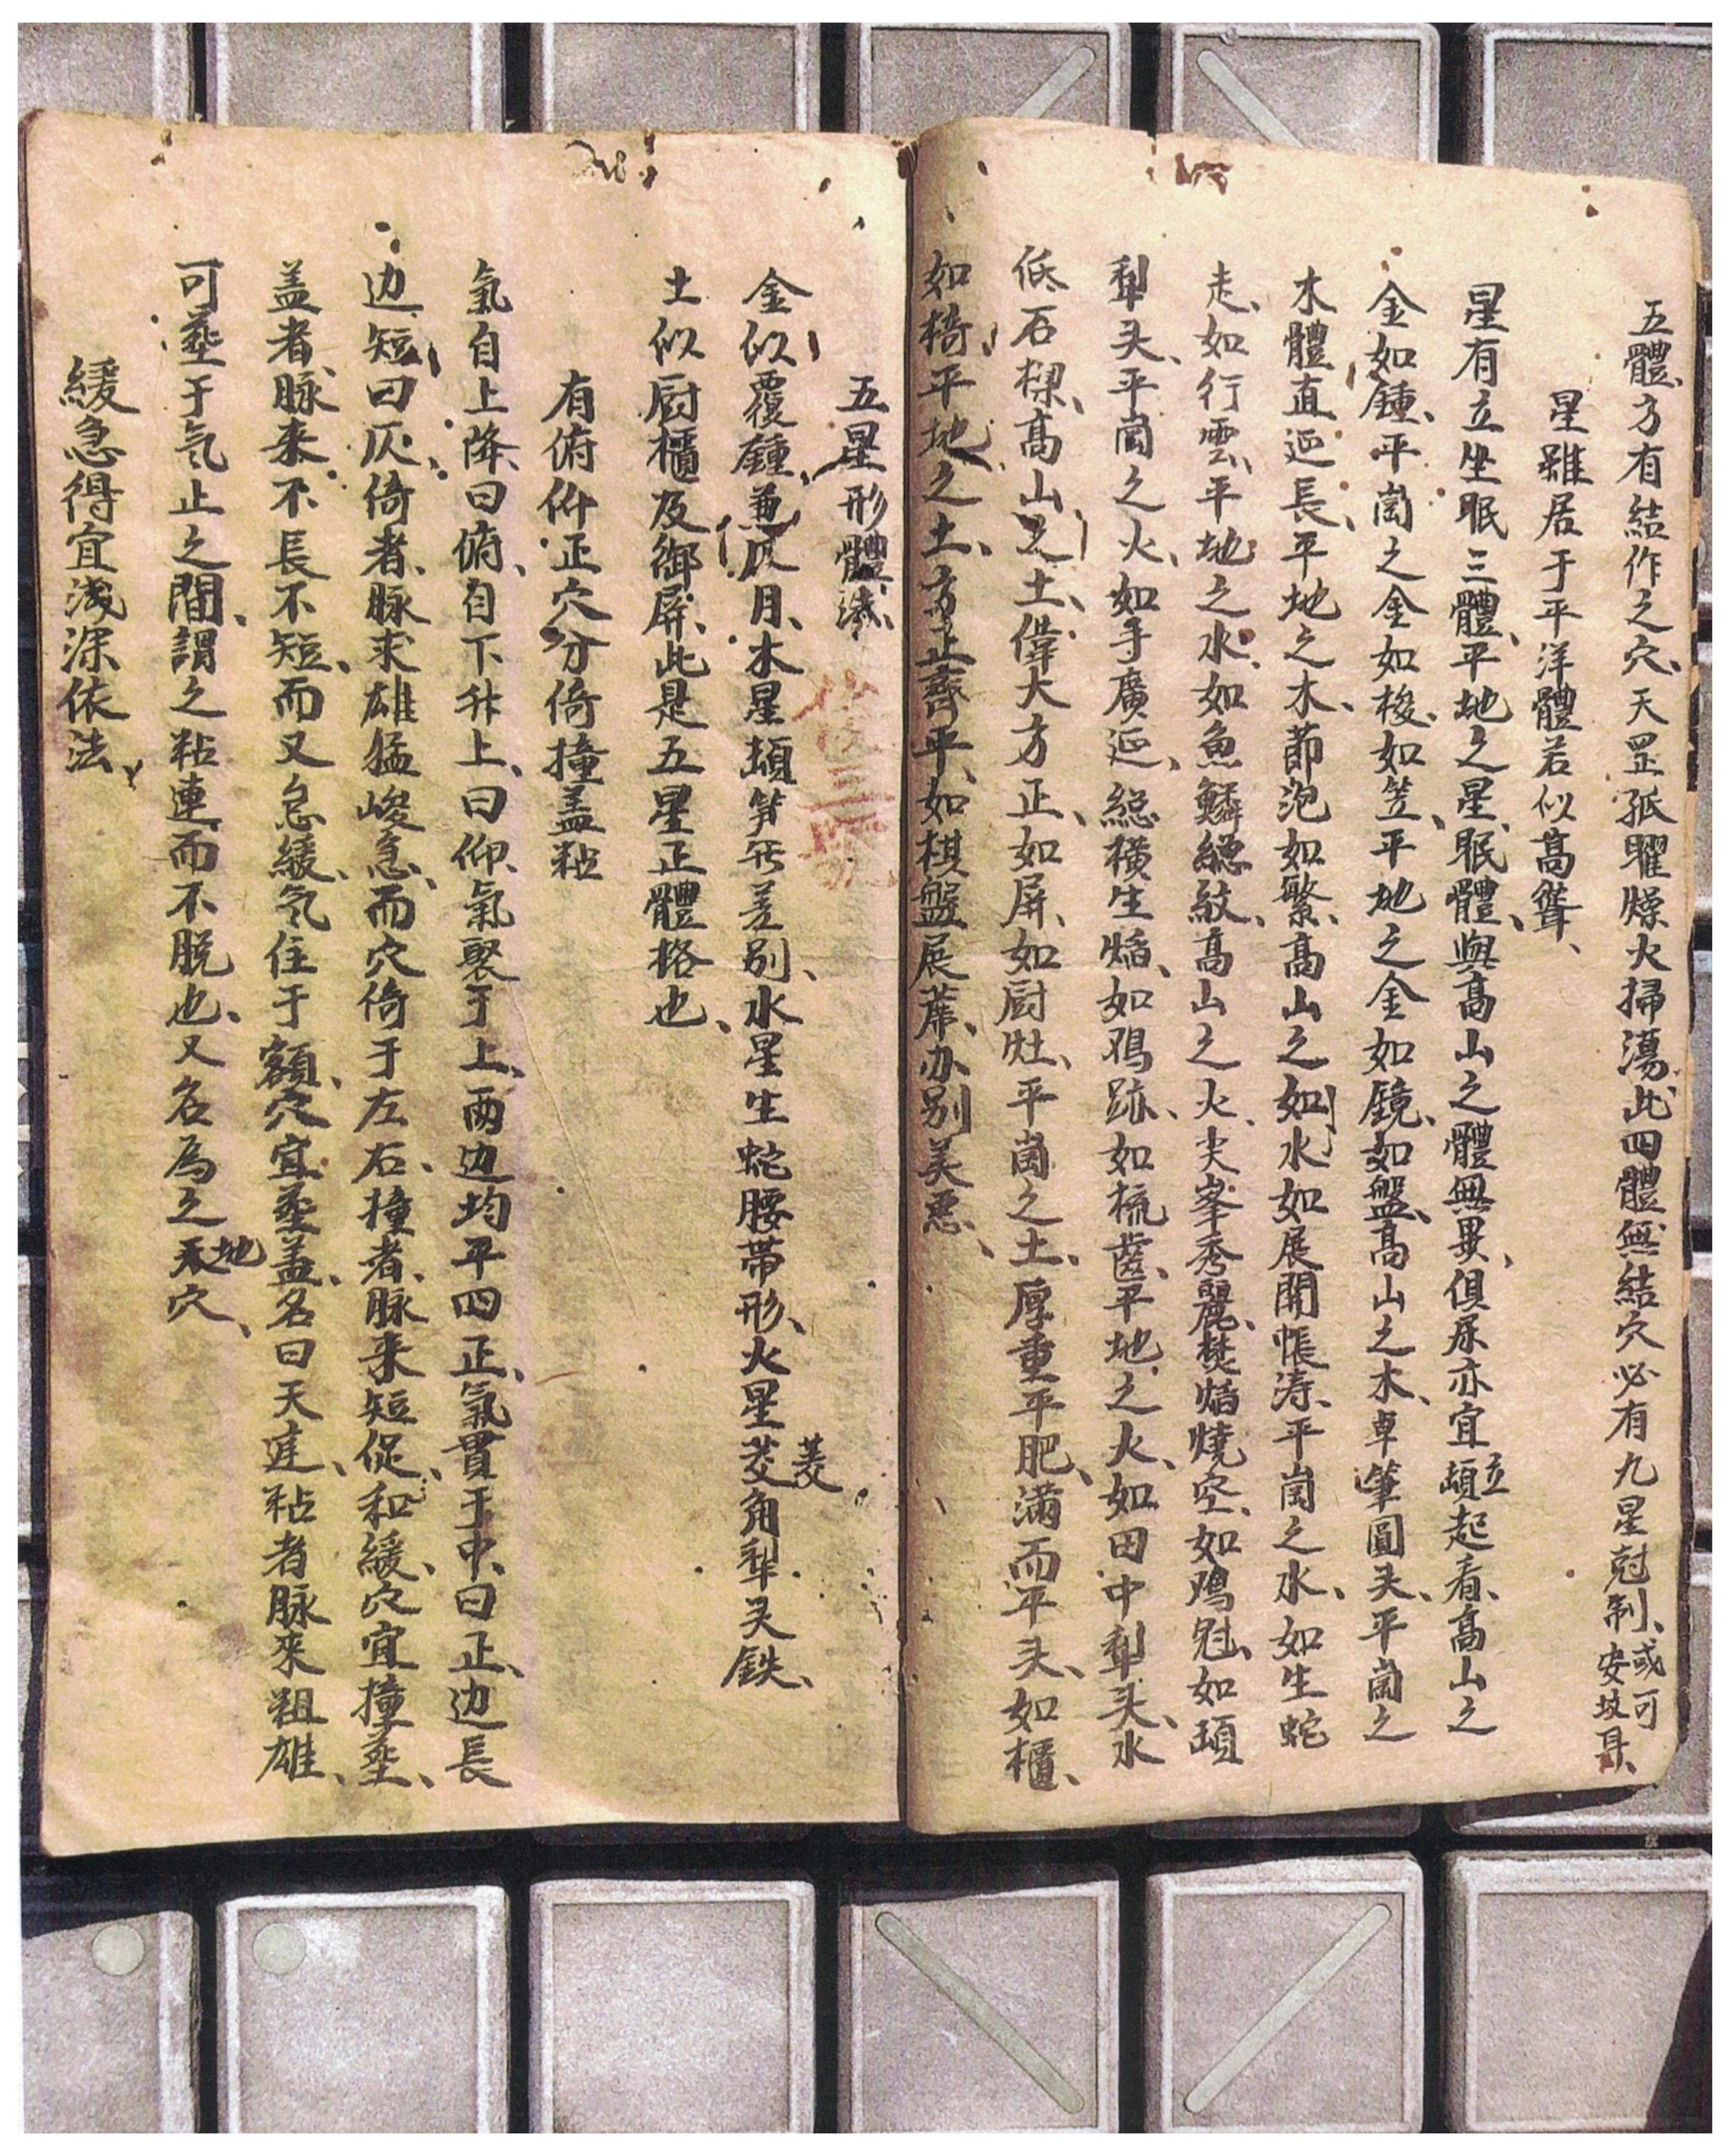 五體、方有結作之穴、天罡孤曜燥火掃蕩、此四體無結穴必有九星尅制、或可安坟耳、
星雖居于平洋體若似高聳、
星有立坐眠三體、平地之星、眠體、與高山之體無異、俱屎亦宜立頓起看、高山之
金如鍾、平崗之金如梭、如笠、平地之金如鏡、如盤、高山之木、卓筆圓头、平崗之
木體直延長、平地之木、節泡如繁、高山之如水如展開帳涛、平崗之水、如生蛇
走、如行雲、平地之水、如魚鱗縂紋、高山之火、尖峯秀麗、焚焰燒空、如鳮冠、如頭
犁头、平崗之火、如手廣延、縂橫生焰、如鳮跡、如梳齒、平地之火、如田中犁头、水
低石樑、高山之土、偉大方正、如屏、如厨灶、平崗之土、厚重平肥、滿而平头、如櫃、
如椅、平地之土、方正齊平、如棋盤展蓆、办别美惡、
五星形體法、
金似覆鍾、兼仄月、木星頓笋所差别、水星生蛇腰帶形、火星茭菱角犁头鉄、
土似厨櫃及御屏、此是五星正體格也、
有俯仰正穴分倚撞盖粘
氣自上降、曰俯、自下升上、曰仰、氣聚于上、兩边均平四正、氣貫于中、曰正、边長
边短、曰仄、倚者、脉求雄猛峻急、而穴倚于左右、撞者、脉來短促、和緩、穴宜撞塟、
盖者、脉来不長不短、而又急緩、気住于額、穴宜塟盖、名曰天遑、粘者脉來粗雄、
可塟于气止之間、謂之粘連而不脱也、又名為之地穴、
緩急得宜浅深依法、